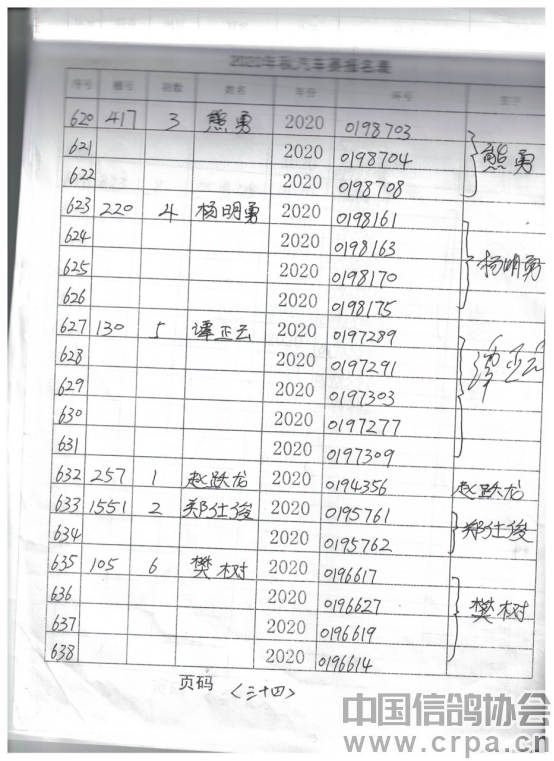 2020年秋汽车赛报名表
序号 棚号 羽数 姓名 年份 环号 签字
620 417 3 熊勇 2020 0198703 熊勇
621 2020 0198704
622 2020 0198708
623 220 4 杨明勇 2020 0198161 杨明勇
624 2020 0198163
625 2020 0198170
626 2020 0198175
627 130 5 谭正云 2020 0197289 谭正云
628 2020 0197291
629 2020 0197303
630 2020 0197277
631 2020 0197309
632 257 1 赵跃龙 2020 0194356 赵跃龙
633 1551 2 郑仕俊 2020 0195761 郑仕俊
634 2020 0195762
635 105 6 樊树 2020 0196617 樊树
636 2020 0196627
637 2020 0196619
638 2020 0196614
页码 <三十四>
中国信鸽协会
www.crpa.cn